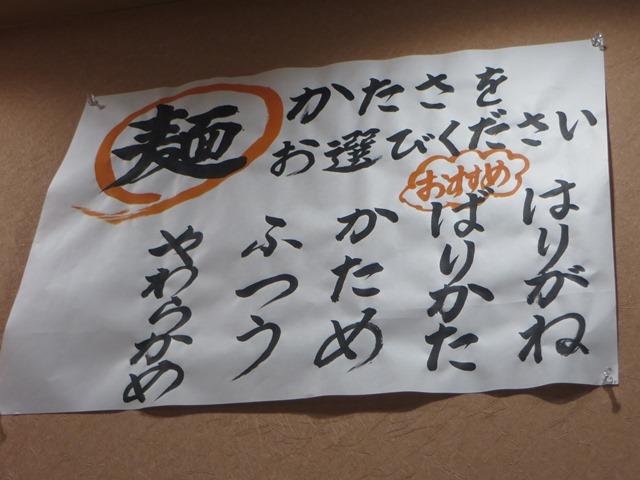 麺
かたさを
お選びください
はりがね
おすすめ
ばりかた
かため
ふつう
やわらかめ